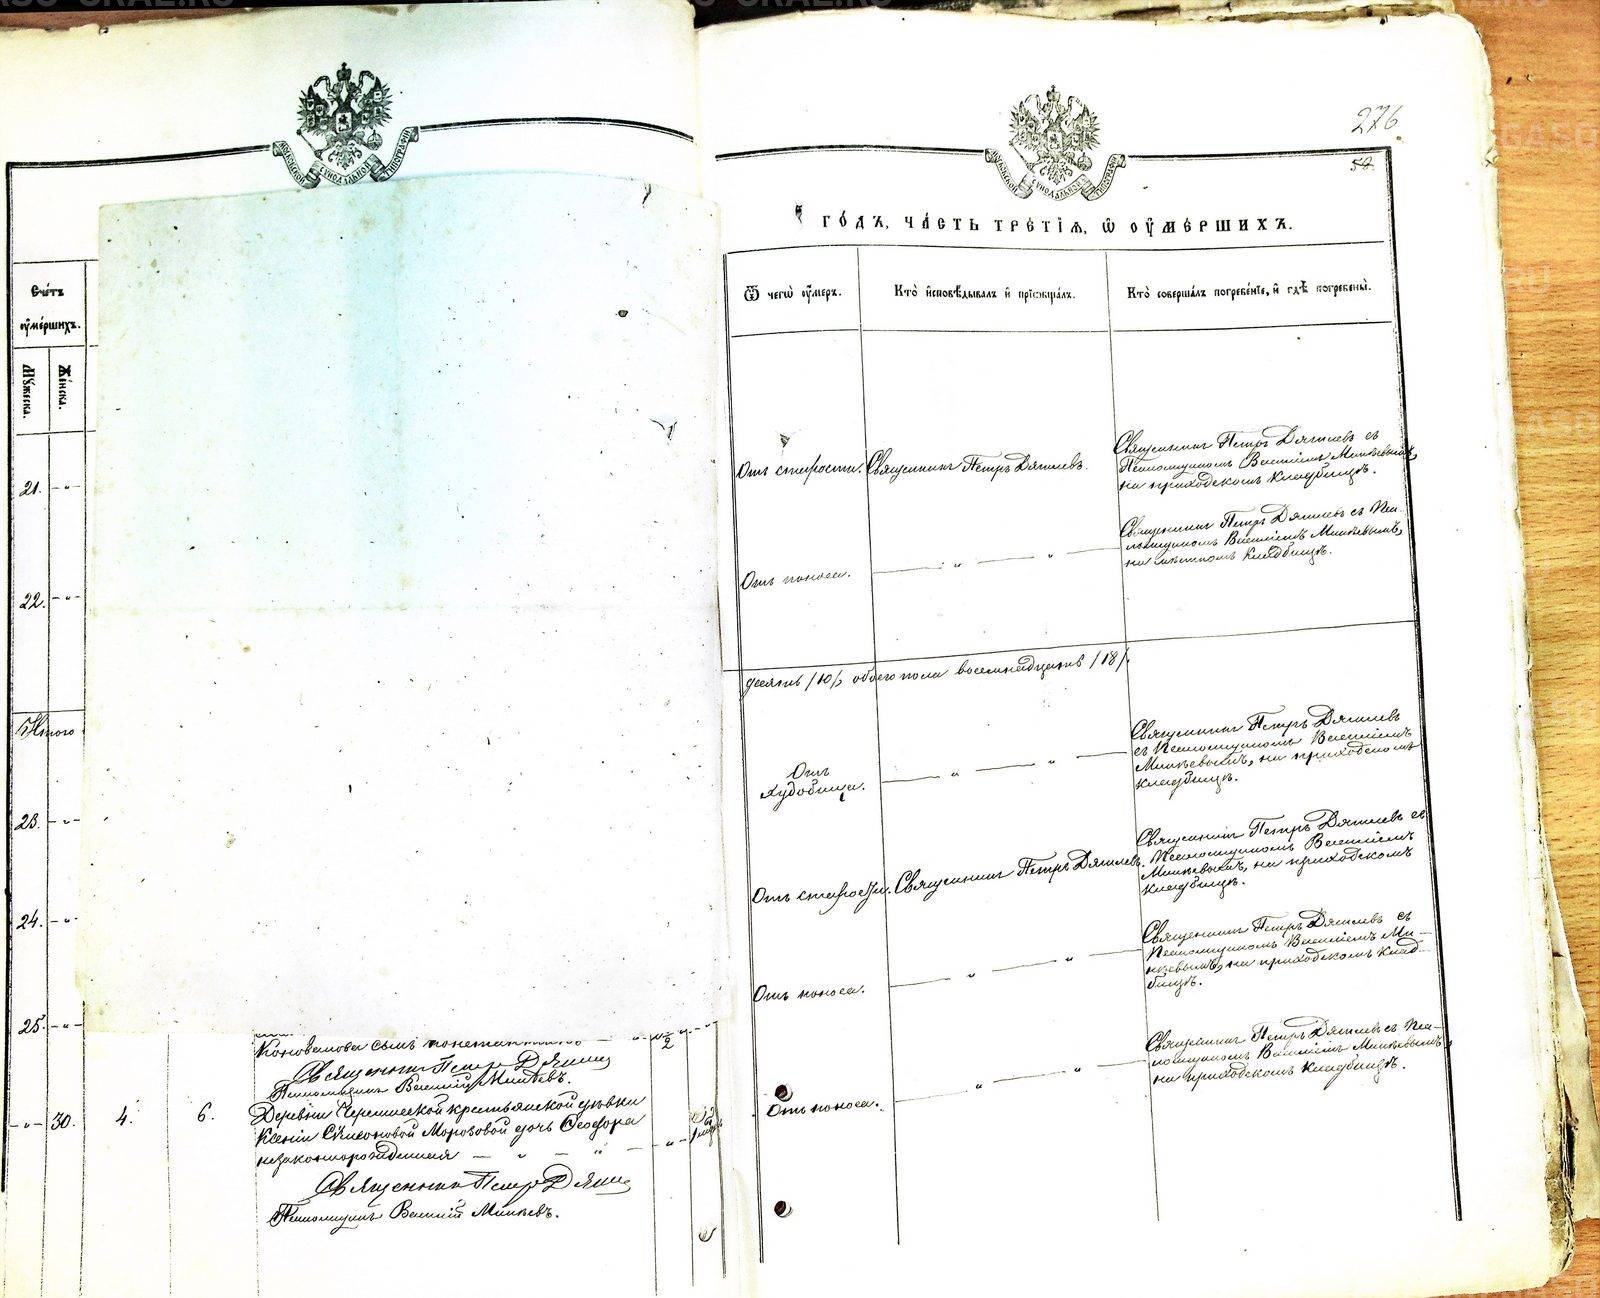 МОСКОВСКОЙ СѴНОДАЛЬНОЙ ТИПОГРАФІИ
Счетъ
оумершихъ.
Мужеска.
Женска.
21. - „ -
22. - „ -
Итого
23. - „ -
24. - „ -
25. - „ -
Коновалова сынъ
Священникъ Петръ
Псаломщикъ Василій Минѣевъ.
- „ - 30. 4. 6. Деревни крестьянской дѣвки
Ксеніи Симоновой Морозовой дочь Ѳеодора
незаконнорожденная - „ - „ -
Священникъ Петръ
Псаломщикъ Василій Минѣевъ.
276
МОСКОВСКОЙ СѴНОДАЛЬНОЙ ТИПОГРАФІИ
52.
годъ, часть третїѧ, ѿ оумершихъ.
Ѿ чегѡ оумеръ.
Кто исповѣдывалъ и прїѡбщалъ.
Кто совершалъ погребенїе, и гдѣ погребены.
Отъ старости. Священникъ Петръ Дягилевъ.
Священникъ Петръ Дягилевъ съ
Псаломщикомъ Василіемъ Минѣевымъ,
на приходскомъ кладбищѣ.
Отъ поноса. — „ — „ —
Священникъ Петръ Дягилевъ съ Пса-
ломщикомъ Василіемъ Минѣевымъ,
на кладбищѣ.
десять /10/, обоего пола восемнадцать /18/.
Отъ
худобища. — „ — „ —
Священникъ Петръ Дягилевъ
съ Псаломщикомъ Василіемъ
Минѣевымъ, на приходскомъ
кладбищѣ.
Отъ старости. Священникъ Петръ Дягилевъ.
Священникъ Петръ Дягилевъ съ
Псаломщикомъ Василіемъ
Минѣевымъ, на приходскомъ
кладбищѣ.
Отъ поноса. — „ — „ —
Священникъ Петръ Дягилевъ съ
Псаломщикомъ Василіемъ Ми-
нѣевымъ, на приходскомъ клад-
бищѣ.
Отъ поноса. — „ — „ —
Священникъ Петръ Дягилевъ съ Пса-
ломщикомъ Василіемъ Минѣевымъ,
на приходскомъ кладбищѣ.